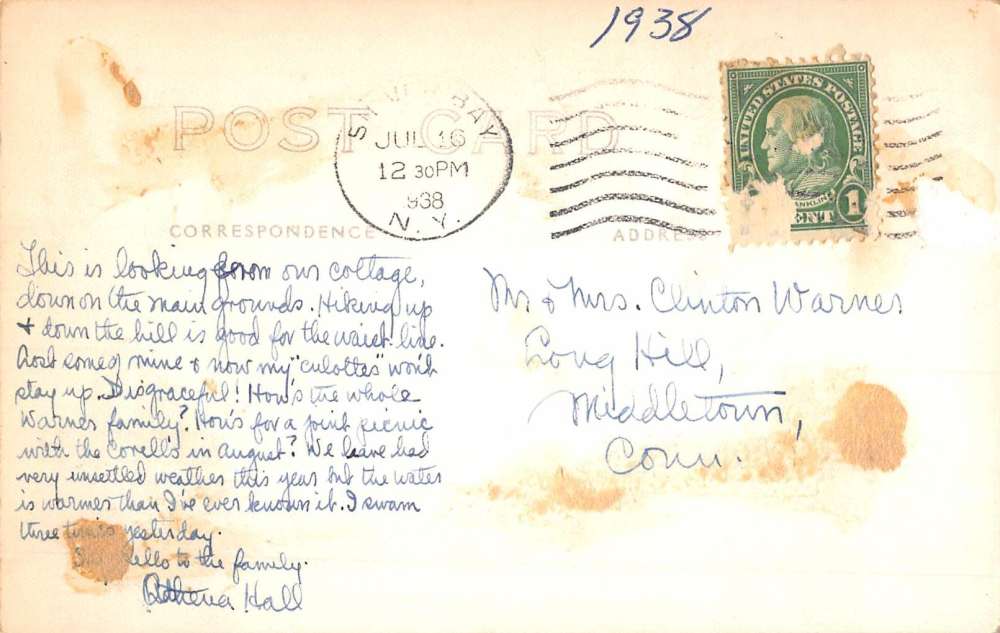 1938
POST CARD
BAY
JUL 16
12 30 PM
1938
N.Y.
UNITED STATES POSTAGE
FRANKLIN
1 CENT
CORRESPONDENCE
ADDRESS
This is looking from our cottage,
down on the main grounds. Hiking up
& down the hill is good for the waist line.
Lost some of mine & now my "culottes" won't
stay up. Disgraceful! How's the whole
Warner family? How's for a joint picnic
with the Covells in August? We have had
very unsettled weather this year but the water
is warmer than I've ever known it. I swam
three times yesterday.
Say hello to the family.
Hall
Mr & Mrs. Clinton Warner
Long Hill,
Middletown,
Conn.